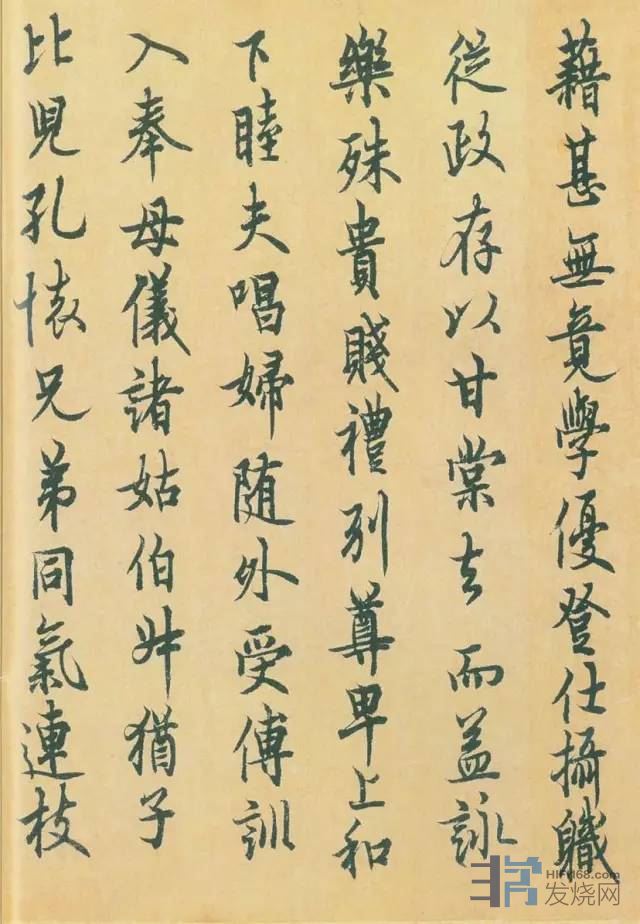 藉甚無竟學優登仕攝職
從政存以甘棠去而益詠
樂殊貴賤禮別尊卑上和
下睦夫唱婦随外受傅訓
入奉母儀諸姑伯叔猶子
比兒孔懷兄弟同氣連枝
HIFI168.com
发烧网